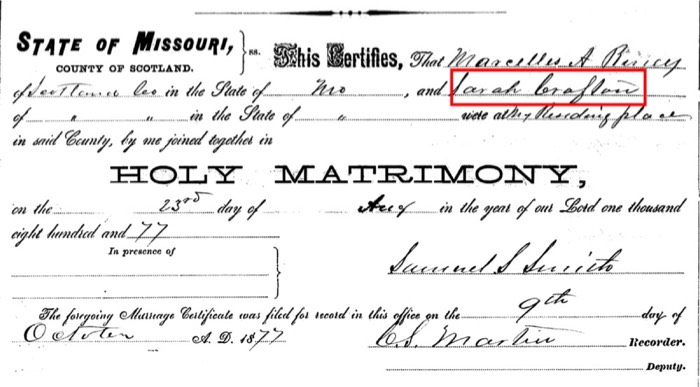 STATE OF MISSOURI, } ss. This Certifies, That Marcellus A
COUNTY OF SCOTLAND.
of Scotland Co in the State of Mo , and Sarah Crafton
of " " in the State of " were at My Residing place
in said County, by me joined together in
HOLY MATRIMONY,
on the 23rd day of Aug in the year of our Lord one thousand
eight hundred and 77
In presence of
Samuel S
The foregoing Marriage Certificate was filed for record in this office on the 9th day of
October A. D. 1877 C.S. Martin Recorder.
Deputy.